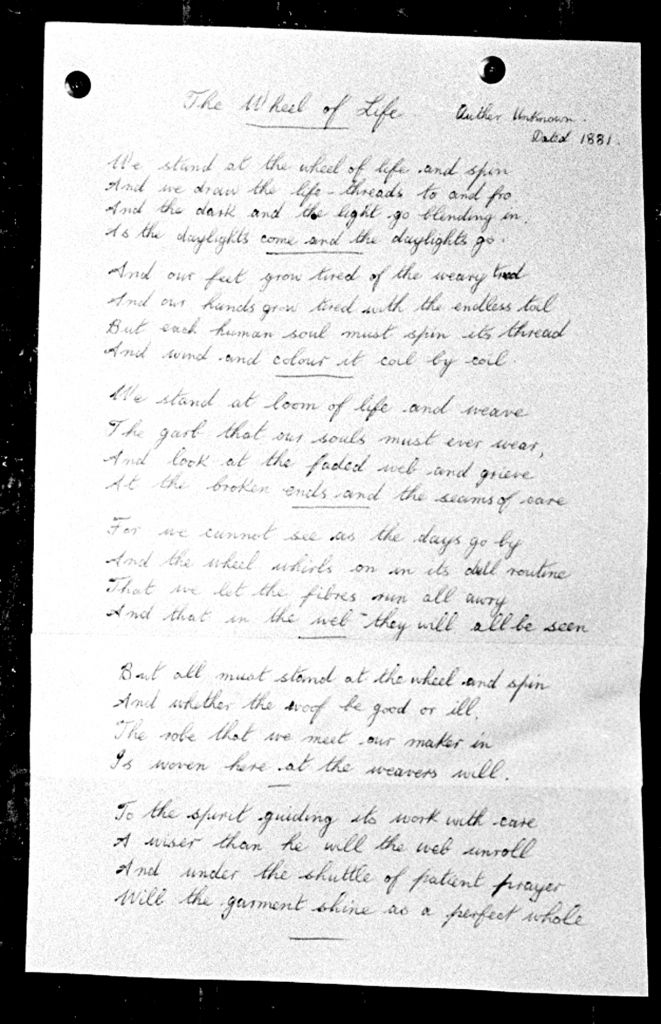 The Wheel of Life.
Auther Unknown.
Dated 1881.
We stand at the wheel of life and spin
And we draw the life-threads to and fro
And the dark and the light go blending in.
As the daylights come and the daylights go.
And our feet grow tired of the weary tred
And our hands grow tired with the endless toil
But each human soul must spin its thread
And wind and colour it coil by coil.
We stand at loom of life and weave
The garb that our souls must ever wear,
And look at the faded web and grieve
At the broken ends and the seams of care
For we cannot see as the days go by
And the wheel whirls on in its dull routine
That we let the fibres run all awry
And that in the web they will all be seen
But all must stand at the wheel and spin
And whether the woof be good or ill.
The robe that we meet our maker in
Is woven here at the weavers will.
To the spirit guiding its work with care
A wiser than he will the web unroll
And under the shuttle of patient prayer
Will the garment shine as a perfect whole